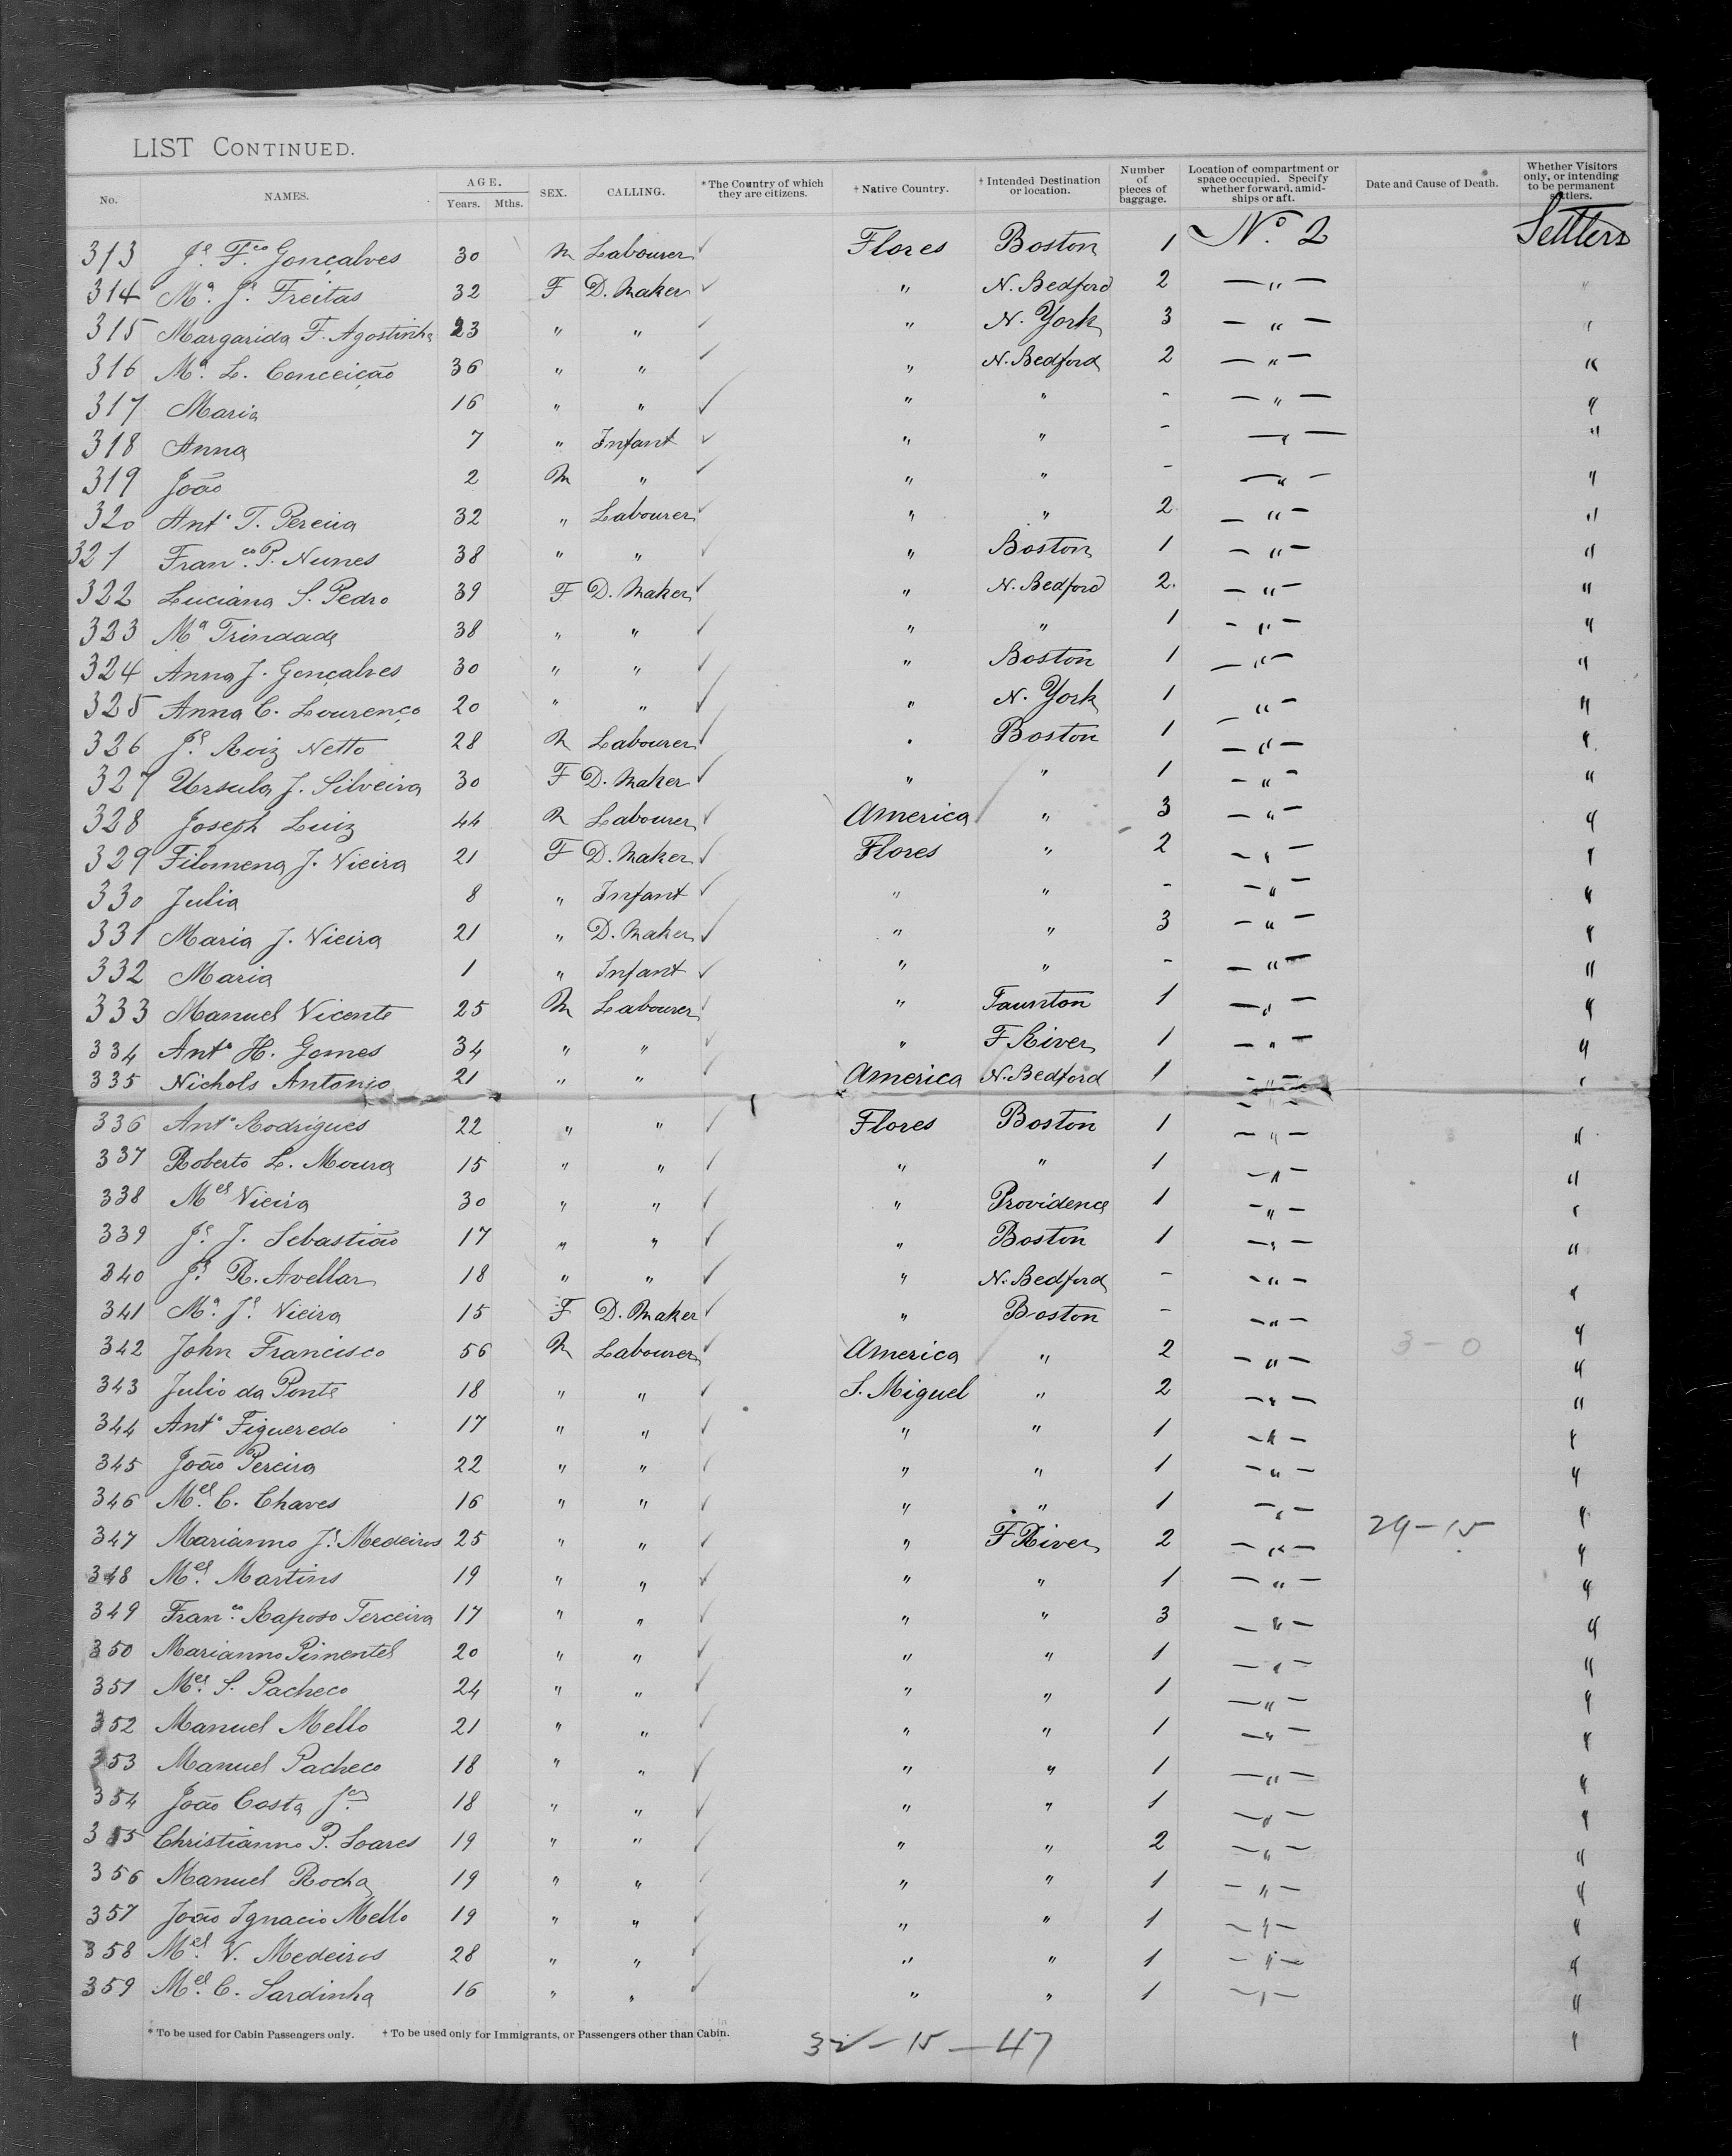 LIST CONTINUED.
No. NAMES. AGE. Years. Mths. SEX. CALLING. *The Country of which they are citizens. †Native Country. †Intended Destination or location. Number of pieces of baggage. Location of compartment or space occupied. Specify whether forward, amidships or aft. Date and Cause of Death. Whether Visitors only, or intending to be permanent settlers.
313 Jé. F.co Gonçalves 30 M Labourer ✓ Flores Boston 1 No. 2 Settlers
314 Ma. Jé. Freitas 32 F D. Maker ✓ " N. Bedford 2 — " — "
315 Margarida F. Agostinha 23 " " ✓ " N. York 3 — " — "
316 Ma. L. Conceição 36 " " ✓ " N. Bedford 2 — " — "
317 Maria 16 " " ✓ " " - — " — "
318 Anna 7 " Infant ✓ " " - — " — "
319 João 2 M " ✓ " " - — " — "
320 Anto T. Pereira 32 " Labourer ✓ " " 2 — " — "
321 Fran.co P. Nunes 38 " " ✓ " Boston 1 — " — "
322 Luciana S. Pedro 39 F D. Maker ✓ " N. Bedford 2 — " — "
323 Ma Trindade 38 " " ✓ " " 1 — " — "
324 Anna J. Gonçalves 30 " " ✓ " Boston 1 — " — "
325 Anna C. Lourenço 20 " " ✓ " N. York 1 — " — "
326 Jé. Roiz Netto 28 M Labourer ✓ " Boston 1 — " — "
327 Ursula J. Silveira 30 F D. Maker ✓ " " 1 — " — "
328 Joseph Luiz 44 M Labourer ✓ America " 3 — " — "
329 Filomena J. Vieira 21 F D. Maker ✓ Flores " 2 — " — "
330 Julia 8 " Infant ✓ " " - — " — "
331 Maria J. Vieira 21 " D. Maker ✓ " " 3 — " — "
332 Maria 1 " Infant ✓ " " - — " — "
333 Manuel Vicente 25 M Labourer ✓ " Taunton 1 — " — "
334 Anto H. Gomes 34 " " ✓ " F River 1 — " — "
335 Nichols Antonio 21 " " ✓ America N. Bedford 1 — " — "
336 Anto Rodrigues 22 " " ✓ Flores Boston 1 — " — "
337 Roberto L. Moura 15 " " ✓ " " 1 — " — "
338 Mel Vieira 30 " " ✓ " Providence 1 — " — "
339 Jé. J. Sebastião 17 " " ✓ " Boston 1 — " — "
340 Jé. R. Avellar 18 " " ✓ " N. Bedford - — " — "
341 Ma. Jé. Vieira 15 F D. Maker ✓ " Boston - — " — "
342 John Francisco 56 M Labourer ✓ America " 2 — " — 3 - 0 "
343 Julio da Ponte 18 " " ✓ S. Miguel " 2 — " — "
344 Anto Figueredo 17 " " ✓ " " 1 — " — "
345 João Pereira 22 " " ✓ " " 1 — " — "
346 Mel. C. Chaves 16 " " ✓ " " 1 — " — "
347 Marianno Jé. Medeiros 25 " " ✓ " F River 2 — " — 29 - 15 "
348 Mel. Martins 19 " " ✓ " " 1 — " — "
349 Fran.co Raposo Terceira 17 " " ✓ " " 3 — " — "
350 Marianno Pimentel 20 " " ✓ " " 1 — " — "
351 Mel. S. Pacheco 24 " " ✓ " " 1 — " — "
352 Manuel Mello 21 " " ✓ " " 1 — " — "
353 Manuel Pacheco 18 " " ✓ " " 1 — " — "
354 João Costa Jor 18 " " ✓ " " 1 — " — "
355 Christianno P. Soares 19 " " ✓ " " 2 — " — "
356 Manuel Rocha 19 " " ✓ " " 1 — " — "
357 João Ignacio Mello 19 " " ✓ " " 1 — " — "
358 Mel. V. Medeiros 28 " " ✓ " " 1 — " — "
359 Mel. C. Sardinha 16 " " ✓ " " 1 — " — "
* To be used for Cabin Passengers only. † To be used only for Immigrants, or Passengers other than Cabin.
32 - 15 - 47